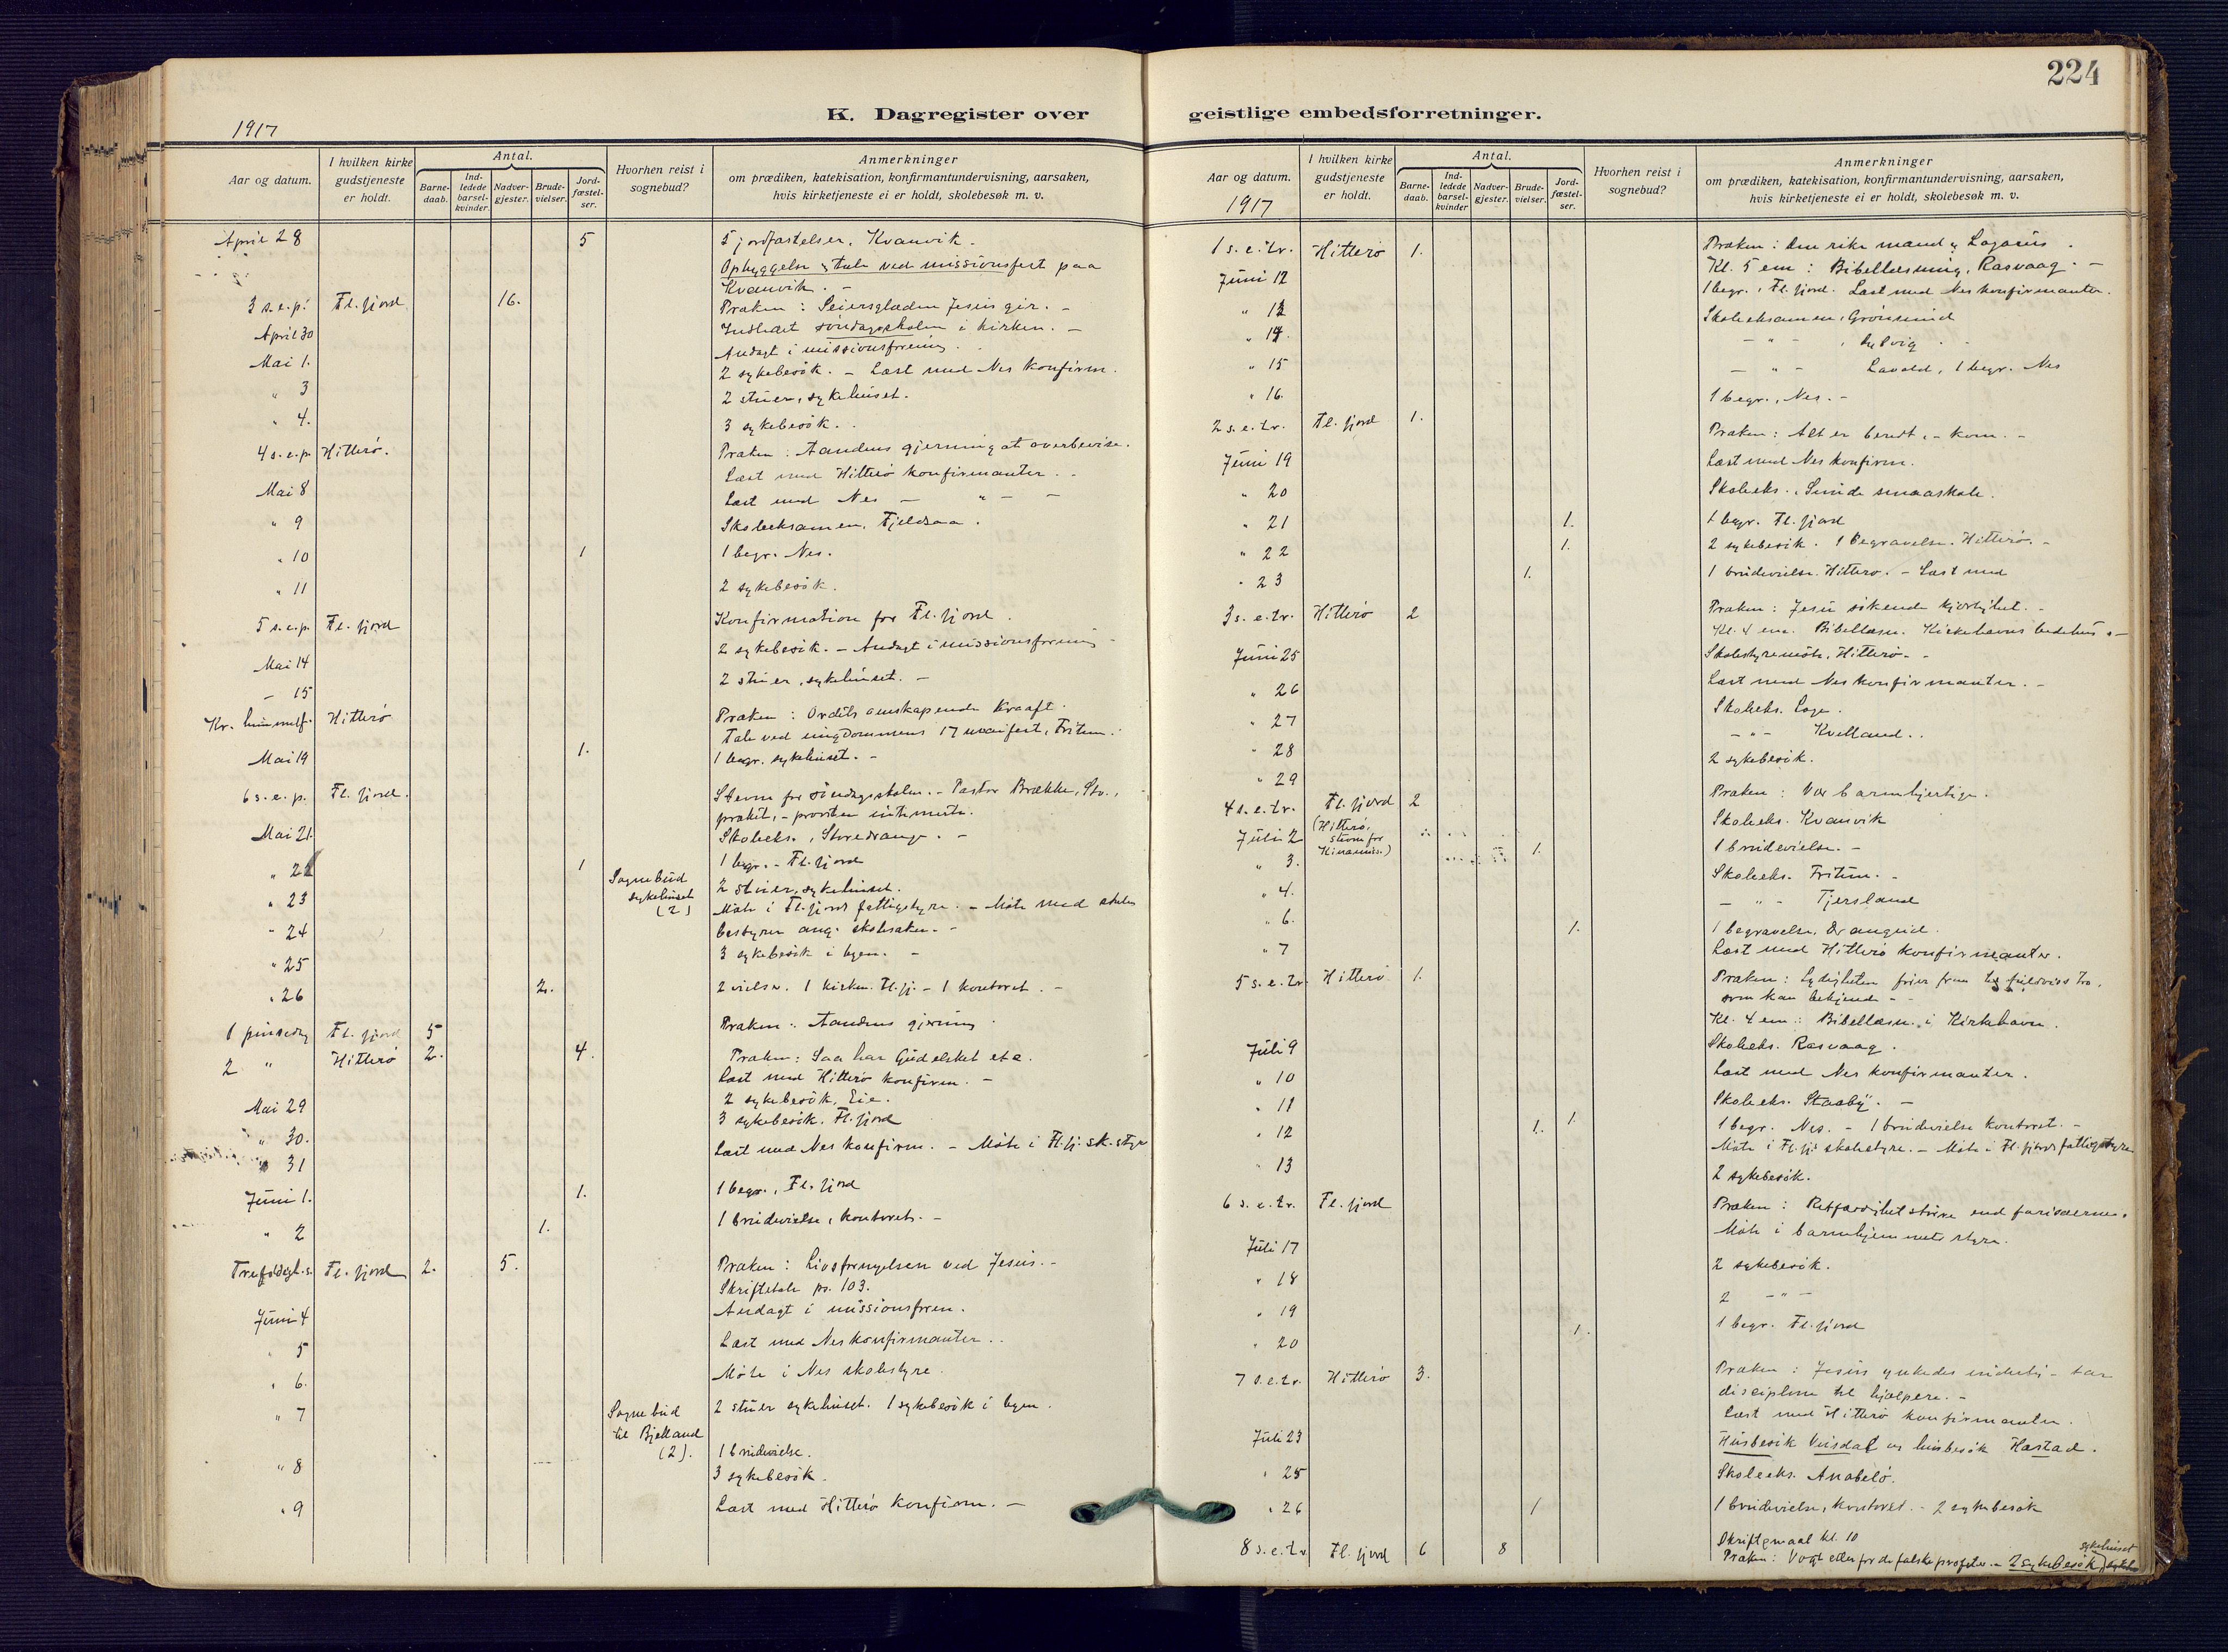 224
K. Dagregister over geistlige embedsforretninger.
1917
Aar og datum.
I hvilken kirke gudstjeneste er holdt.
Antal.
Barne-daab.
Ind-ledede barsel-kvinder.
Nadver-gjester.
Brude-vielser.
Jord-fæstel-ser.
Hvorhen reist i sognebud?
Anmerkninger
om prædiken, katekisation, konfirmantundervisning, aarsaken,
hvis kirketjeneste ei er holdt, skolebesøk m. v.
April 28 5 5 jordfæstelser, Kvanvik.
Opbyggelse & tale ved missionsfest paa
Kvanvik. -
3 s.e.p. Fl.fjord 16. Præken: Seiersglæden Jesus gir. -
Indledet søndagsskolen i kirken. -
April 30 Andagt i missionsforening.
Mai 1. 2 sykebesøk. - Læst med Nes konfirm.
" 3 2 stuer, sykehuset.
" 4. 3 sykebesøk.
4 s.e.p. Hitterø. Præken: Aandens gjerning at overbevise.
Læst med Hitterø konfirmanter.
Mai 8 Læst med Nes - " -
" 9 Skoleeksamen, Fjeldsaa.
" 10 1 1 begr. Nes.
" 11 2 sykebesøk.
5 s.e.p. Fl.fjord Konfirmation for Fl.fjord.
2 sykebesøk. - Andagt i missionsforening
Mai 14 2 stuer, sykehuset. -
- 15
Kr. himmelf. Hitterø Præken: Ordets omskapende kraft.
Tale ved ungdommens 17 maifest, Fritum.
Mai 19 1. 1 begr. sykehuset. -
6 s.e.p. Fl.fjord. Stevne for søndagsskolen. - Pastor Brække, Stv.,
præket, - provsten
Mai 21. Skoleeks., Storedrange. -
" 22 1 1 begr. - Fl.fjord
Sognebud sykehuset (2) 2 stuer, sykehuset.
" 23 Møte i Fl.fjord fattigstyre. - Møte med skole
" 24 bestyrer ang. skolesaken. -
" 25 3 sykebesøk i byen. -
" 26 2. 2 vielser. 1 kirken. Fl.fj. - 1 kontoret. -
1 pinsedag Fl.fjord 5 Præken: Aandens gjerning.
2 " Hitterø 2. 4. Præken: Saa har Gud elsket etc.
Læst med Hitterø konfirm. -
Mai 29 2 sykebesøk, Eie.
" 30. 3 sykebesøk. Fl.fjord
" 31 Læst med Nes konfirm. - Møte i Fl.fj. sk.styre
Juni 1. 1. 1 begr., Fl.fjord
" 2 1. 1 brudevielse, kontoret. -
Trefoldigh.s. Fl.fjord 2. 5. Præken: Livsfornyelsen ved Jesus. -
Skriftetale ps. 103.
Juni 4 Andagt i missionsforen.
" 5 Læst med Nes konfirmanter..
" 6. Møte i Nes skolestyre.
" 7 Sognebud til Bjelland (2). 2 stuer sykehuset. 1 sykebesøk i byen.
1 brudevielse.
" 8 3 sykebesøk.
" 9 Læst med Hitterø konfirm. -
Aar og datum.
1917
I hvilken kirke gudstjeneste er holdt.
Antal.
Barne-daab.
Ind-ledede barsel-kvinder
Nadver-gjester.
Brude-vielser.
Jord-fæstel-ser.
Hvorhen reist i sognebud?
Anmerkninger
om prædiken, katekisation, konfirmantundervisning, aarsaken,
hvis kirketjeneste ei er holdt, skolebesøk m. v.
1 s.e.tr. Hitterø 1. Præken: Den rike mand & Lazarus.
Kl. 5 em: Bibellæsning, Rasvaag. -
Juni 12 1 begr., Fl.fjord. Læst med Nes konfirmanter.
" 13 Skoleeksamen, Grønsund
" 14. - " -
" 15 - " - Lavold, 1 begr. Nes
" 16. 1 begr., Nes. -
2 s.e.tr. Fl.fjord 1. Præken: Alt er beredt, - kom. -
Juni 19 Læst med Nes konfirm.
" 20 Skoleeks., Sunde smaaskole.
" 21 1. 1 begr. Fl.fjord
" 22 1. 2 sykebesøk. 1 begravelse. Hitterø. -
" 23 1. 1 brudevielse. Hitterø. - Læst med
3 s.e.tr. Hitterø 2 Præken: Jesu søkende kjærlighet. -
Kl. 4 em. Bibellæsn. Kirkehavns bedehus. -
Juni 25 Skolestyremøte, Hitterø. -
" 26 Læst med Nes konfirmanter. -
" 27 Skoleeks. Loge.
" 28 - " - Kvelland..
" 29 2 sykebesøk.
4 s.e.tr. Fl.fjord 2 Præken: Vær barmhjertige.
(Hitterø, stevne for Kinamis.)
Juli 2 Skoleeks. Kvanvik
" 3. 1. 1 brudevielse. -
" 4. Skoleeks. Fritum. -
" 6. - " - Tjersland
" 7 1. 1 begravelse, Drangeid.
Læst med Hitterø konfirmanter.
5 s.e.tr. Hitterø 1. Præken: Lydigheten frier frem til fuldviss tro,
som kan bekjende -
Kl. 4 em: Bibellæsn. i Kirkehavn.
Juli 9 Skoleeks. Rasvaag.
" 10 Læst med Nes konfirmanter.
" 11 Skoleeks. Staaby. -
" 12 1. 1. 1 begr. Nes. - 1 brudevielse kontoret. -
" 13 Møte i Fl.fj. skolestyre. - Møte i Fl.fjords fattigstyre
2 sykebesøk.
6 s.e.tr. Fl.fjord Præken: Retfærdighet større end farisæernes.
Møte i barnehjemmets styre.
Juli 17 2 sykebesøk.
" 18 2 - " -
" 19
" 20 1. 1 begr. Fl.fjord
7 s.e.tr. Hitterø 3. Præken: Jesus ynkedes inderlig - tar
disciplene til hjælpere. -
Læst med Hitterø konfirmanter.
Juli 23 Husbesøk Veisdal og husbesøk Hæstad.
" 25 Skoleeks. Anabelø.
" 26 1 1 brudevielse, kontoret. - 2 sykebesøk
8 s.e.tr. Fl.fjord 6 8 Skriftemaal kl. 10
Præken: Vogt eder for de falske profeter. - 2 sykebesøk, sykehuset